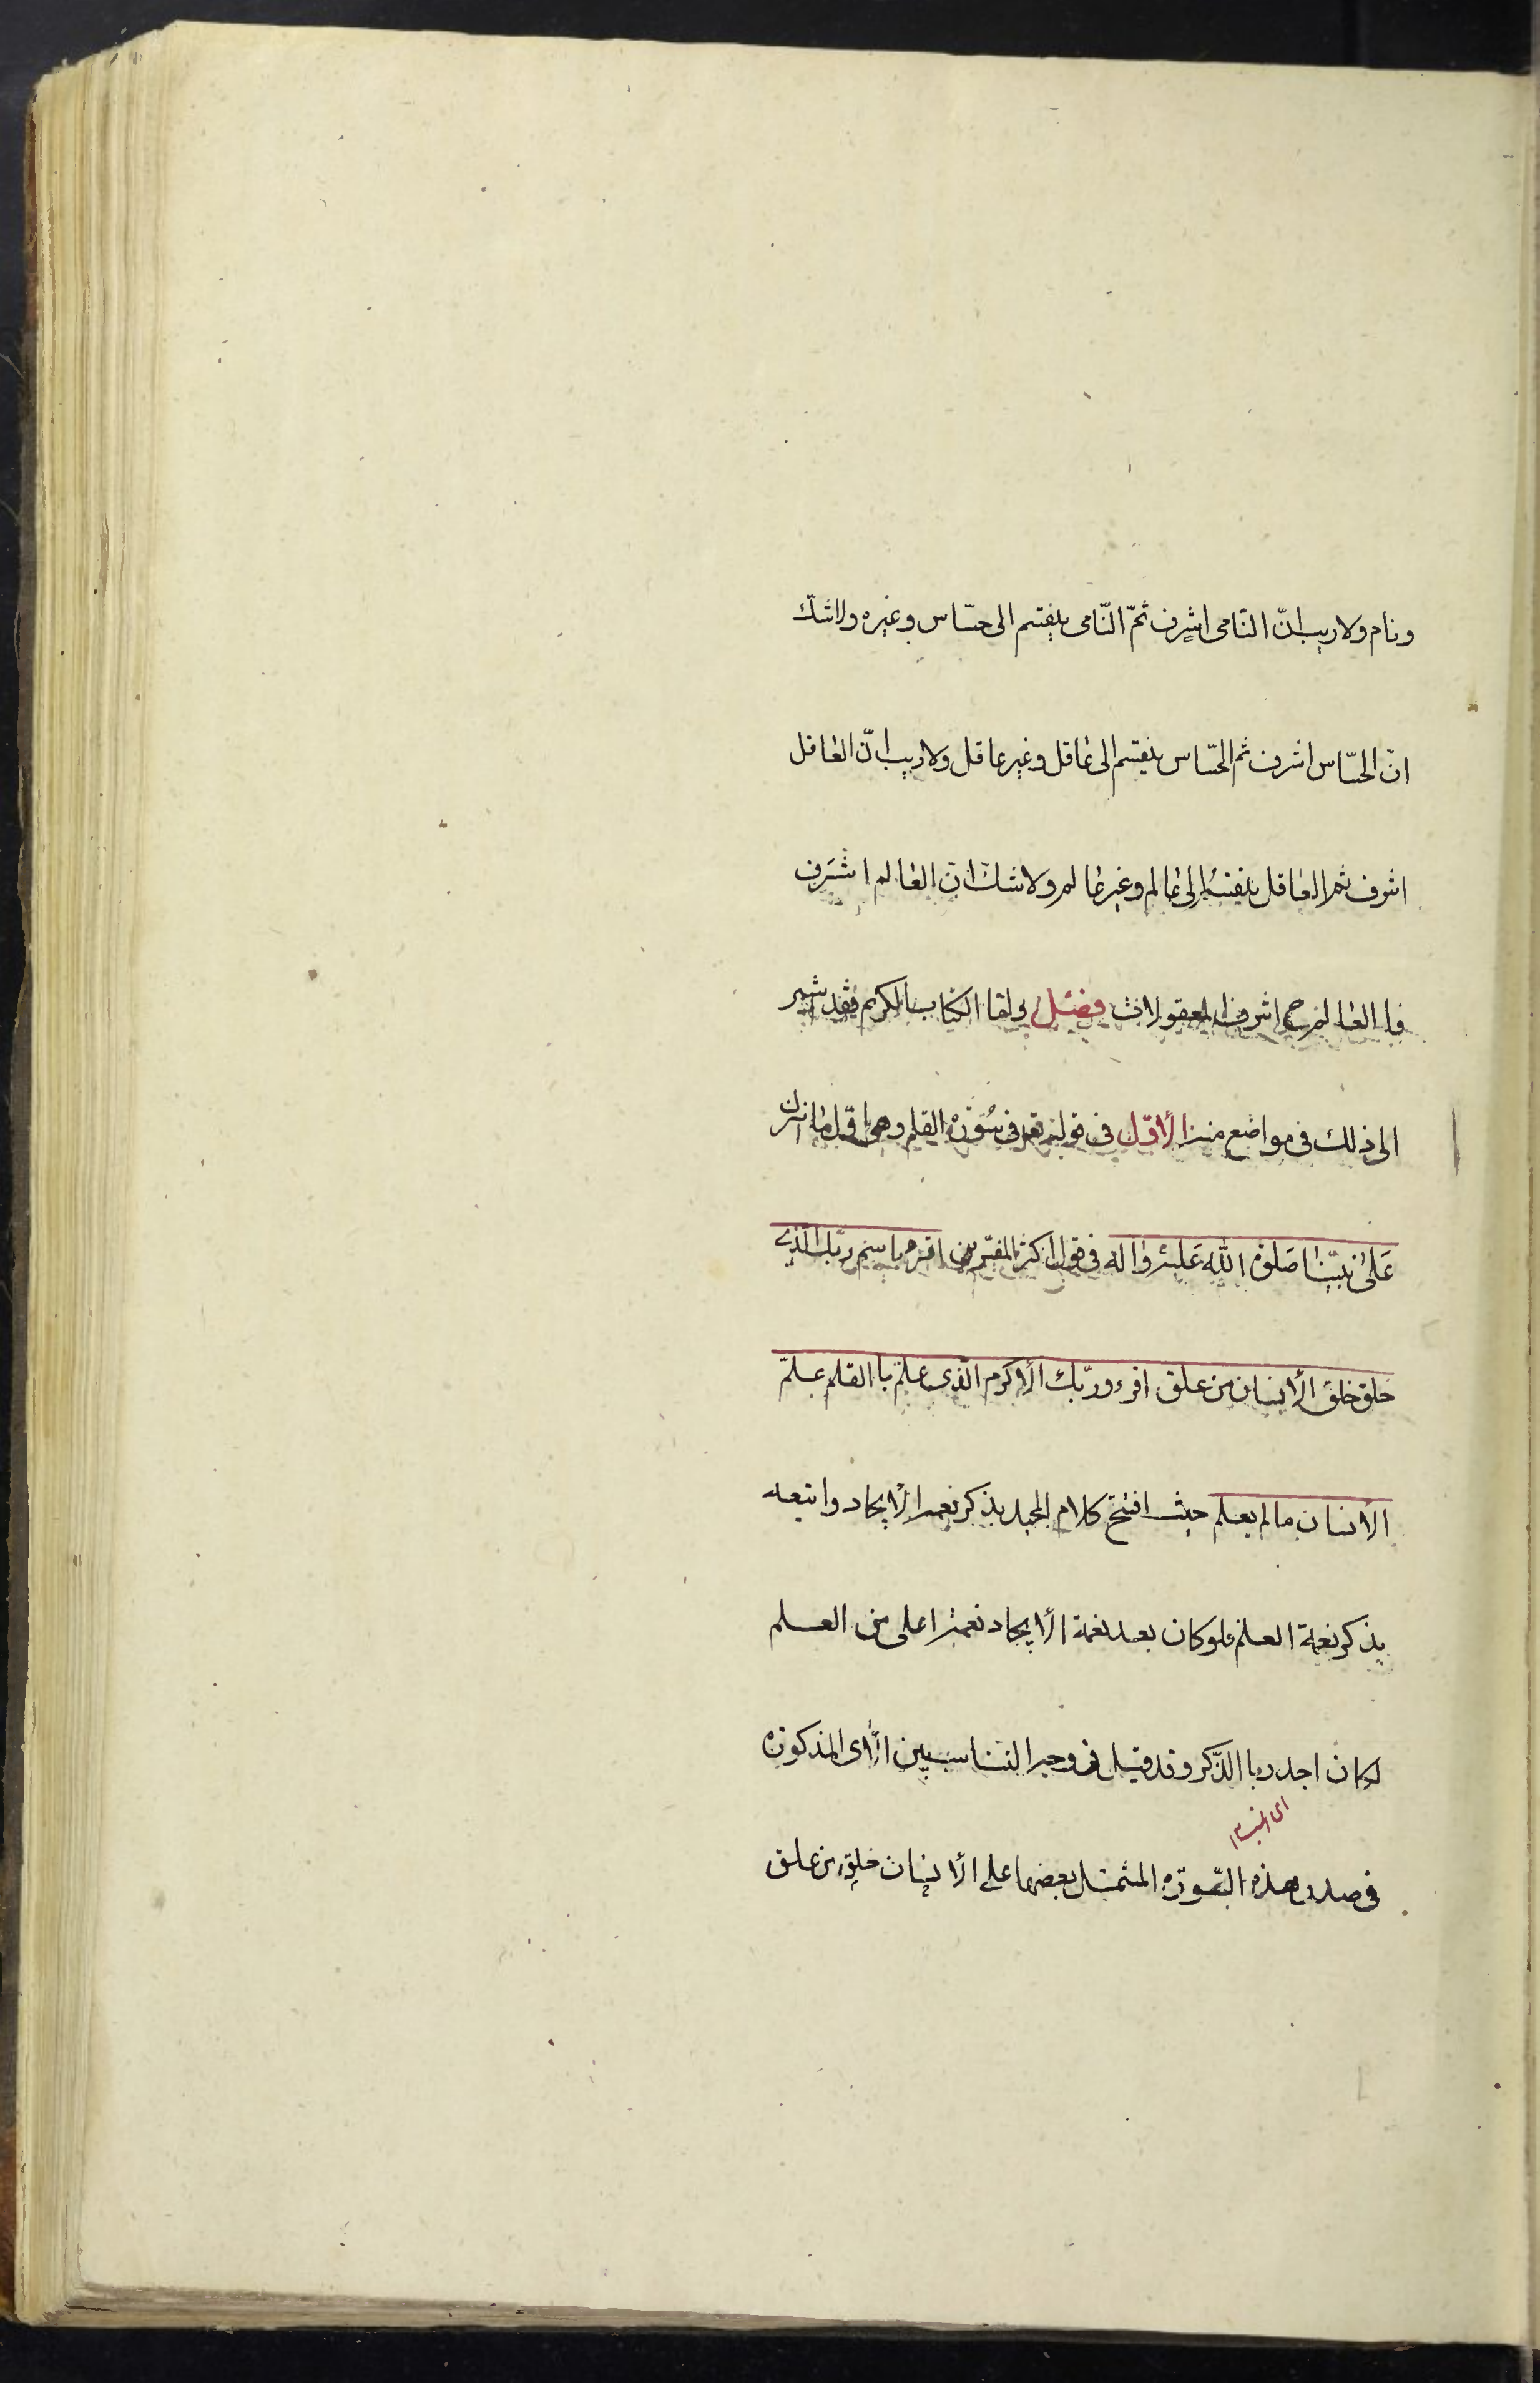 ونام ولا ريب انّ النّامى اشرف ثمّ النّامى ينقسم الى حسّاس وغيره ولا شكّ
ان الحسّاس اشرف ثم الحسّاس ينقسم الى عاقل وغير عاقل ولا ريب انّ العاقل
اشرف ثم العاقل ينقسم الى عالم وغير عالم ولا شك ان العالم اشرف
فا العالم ح اشرف المعقولات فصل ولقا الكتاب الكريم فقد اشير
الى ذلك فى مواضع منه الأوّل فى قوله تعه فى سُورة القلم وهى اوّل ما نزل
عَلىٰ نبيّنا صَلوة الله عَليه واله فى قول اكثر المفسّرين اقرء باسم ربّك الّذى
خلق خلق الأنسان من علق اقرء وربّك الأكرم الّذى علّم باالقلم علّم
الأنسان ما لم يعلم حيث افتتح كلام المجيد بذكر نعمه الأيجاد واتبعه
بذكر نعمة العلم فلو كان بعد نعمة الأيجاد نعمة اعلى من العلم
لكان اجدر باالذّكر وقد قيل فى وجه التناسب بين الأى المذكورة
فى صدر هذه السّورة المشتمل بعضها على الأنسان خلق من علق